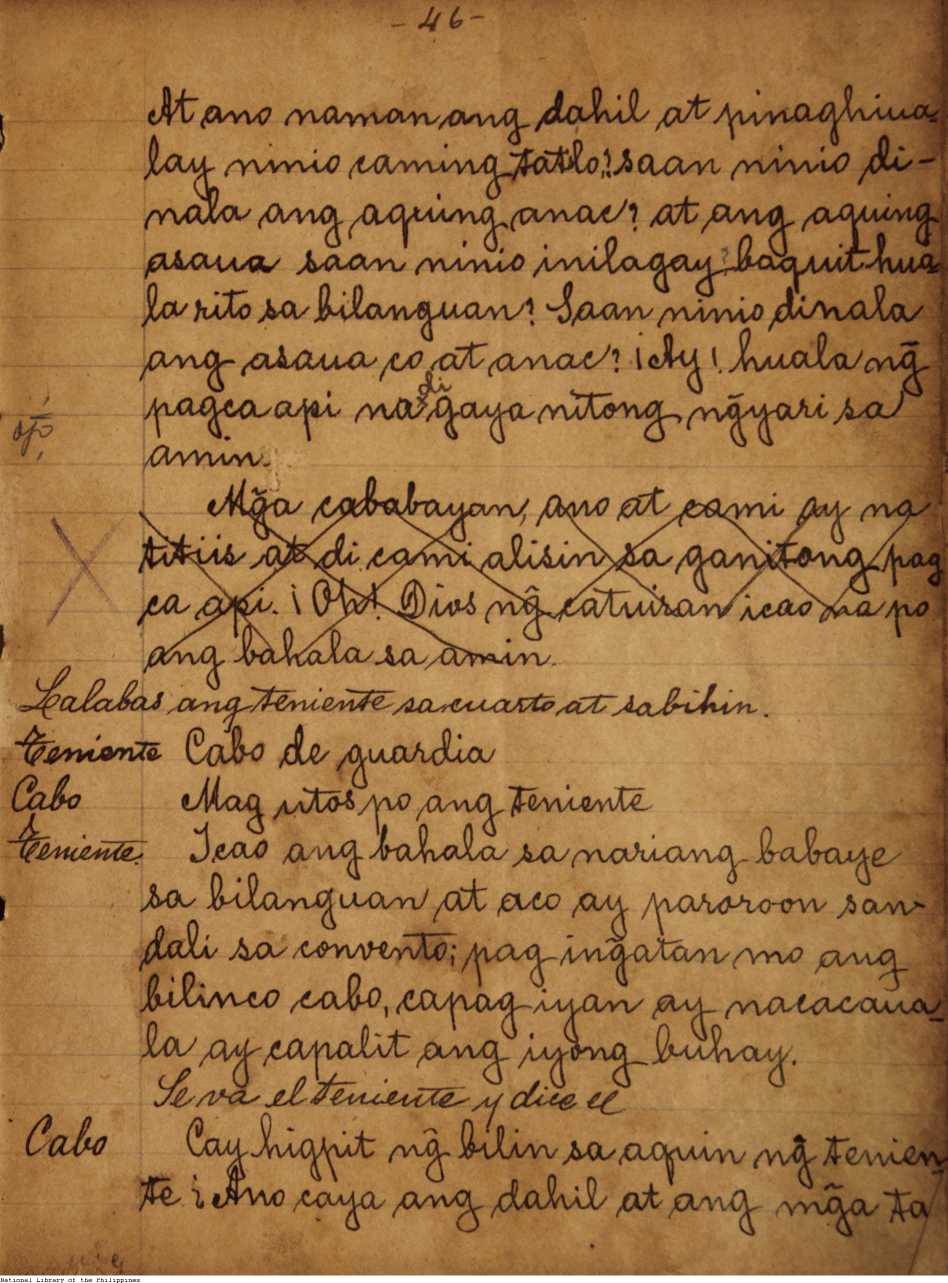 - 46 -
At ano naman ang dahil at pinaghiua-
lay ninio caming tatlo? saan ninio di-
nala ang aquing anac? at ang aquing
asaua saan ninio inilagay? baquit hua-
la rito sa bilanguan? Saan ninio dinala
ang asaua co at anac? ¡Ay! huala ng̃
di
pagca api na g̃aya nitong ng̃yari sa
amin.
Mg̃a cababayan, ano at cami ay na
titiis at di cami alisin sa ganitong pag
ca api. ¡Oh! Dios ng̃ catuiran icao na po
ang bahala sa amin.
Lalabas ang teniente sa cuarto at sabihin.
Teniente Cabo de guardia
Cabo Mag utos po ang teniente
Teniente. Icao ang bahala sa nariang babaye
sa bilanguan at aco ay paroroon san-
dali sa convento; pag ing̃atan mo ang
bilinco cabo, capag iyan ay nacacaua-
la ay capalit ang iyong buhay.
Se va el teniente y dice el
Cabo Cay higpit ng̃ bilin sa aquin ng̃ tenien-
te ¡Ano caya ang dahil at ang mg̃a ta
National Library of the Philippines